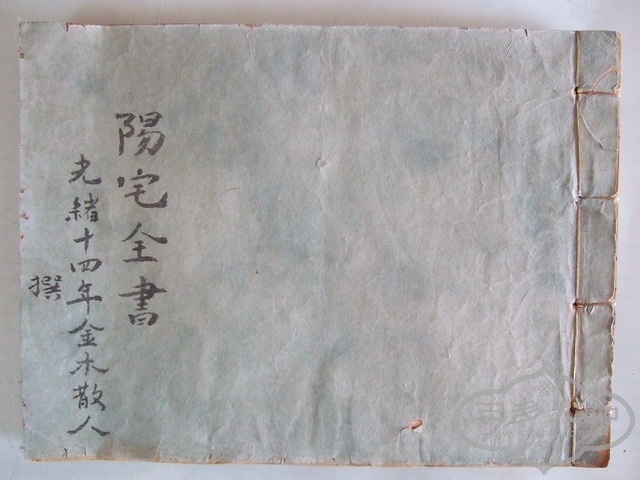 陽宅全書
光緒十四年金木散人
撰